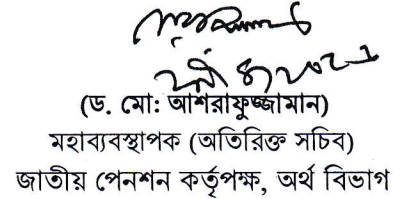 (ড. মো: আশরাফুজ্জামান)
মহাব্যবস্থাপক (অতিরিক্ত সচিব)
জাতীয় পেনশন কর্তৃপক্ষ, অর্থ বিভাগ